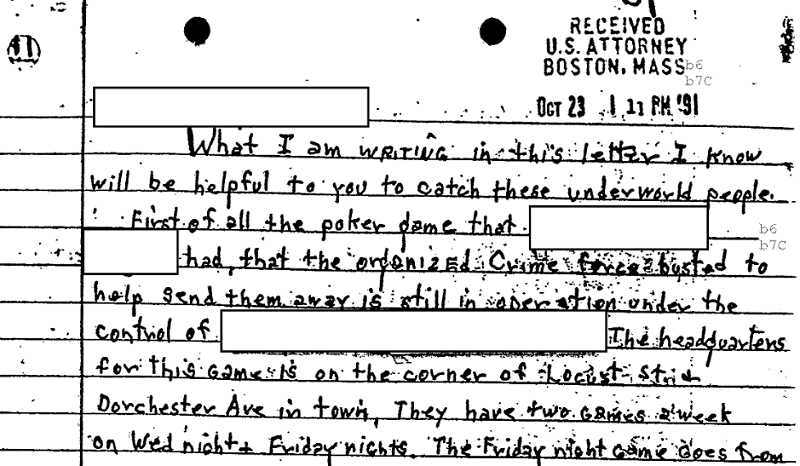 RECEIVED
U.S. ATTORNEY
BOSTON, MASS
b6
b7C
OCT 23 1 11 PM '91
What I am WRITING in this letter I know
will be helpful to you to catch these underworld people.
First of all the poker game that
b6
b7C
had, that the organized Crime force busted to
help send them away is still in operation under the
control of The headquarters
for this game is on the corner of Locust St +
Dorchester Ave in town, They have two games a week
on Wed night + Friday nights. The Friday night game goes from